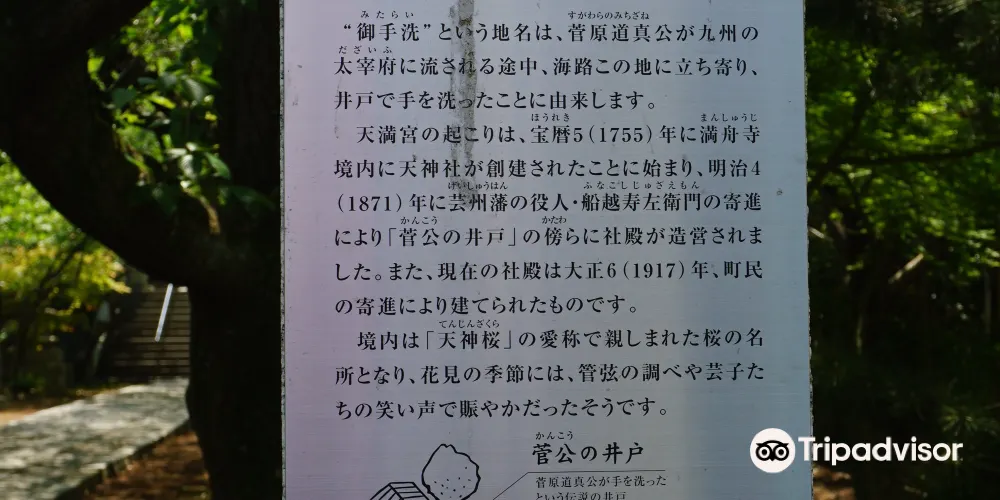 みたらい　すがわらのみちざね
“御手洗”という地名は、菅原道真公が九州の
だざいふ
太宰府に流される途中、海路この地に立ち寄り、
井戸で手を洗ったことに由来します。
ほうれき　まんしゅうじ
天満宮の起こりは、宝暦5(1755)年に満舟寺
境内に天神社が創建されたことに始まり、明治4
げいしゅうはん　ふなごしじゅざえもん
(1871)年に芸州藩の役人・船越寿左衛門の寄進
かんこう　かたわ
により「菅公の井戸」の傍らに社殿が造営されま
した。また、現在の社殿は大正6(1917)年、町民
の寄進により建てられたものです。
てんじんざくら
境内は「天神桜」の愛称で親しまれた桜の名
所となり、花見の季節には、管弦の調べや芸子た
ちの笑い声で賑やかだったそうです。
かんこう
菅公の井戸
菅原道真公が手を洗った
という伝説の井戸
Tripadvisor